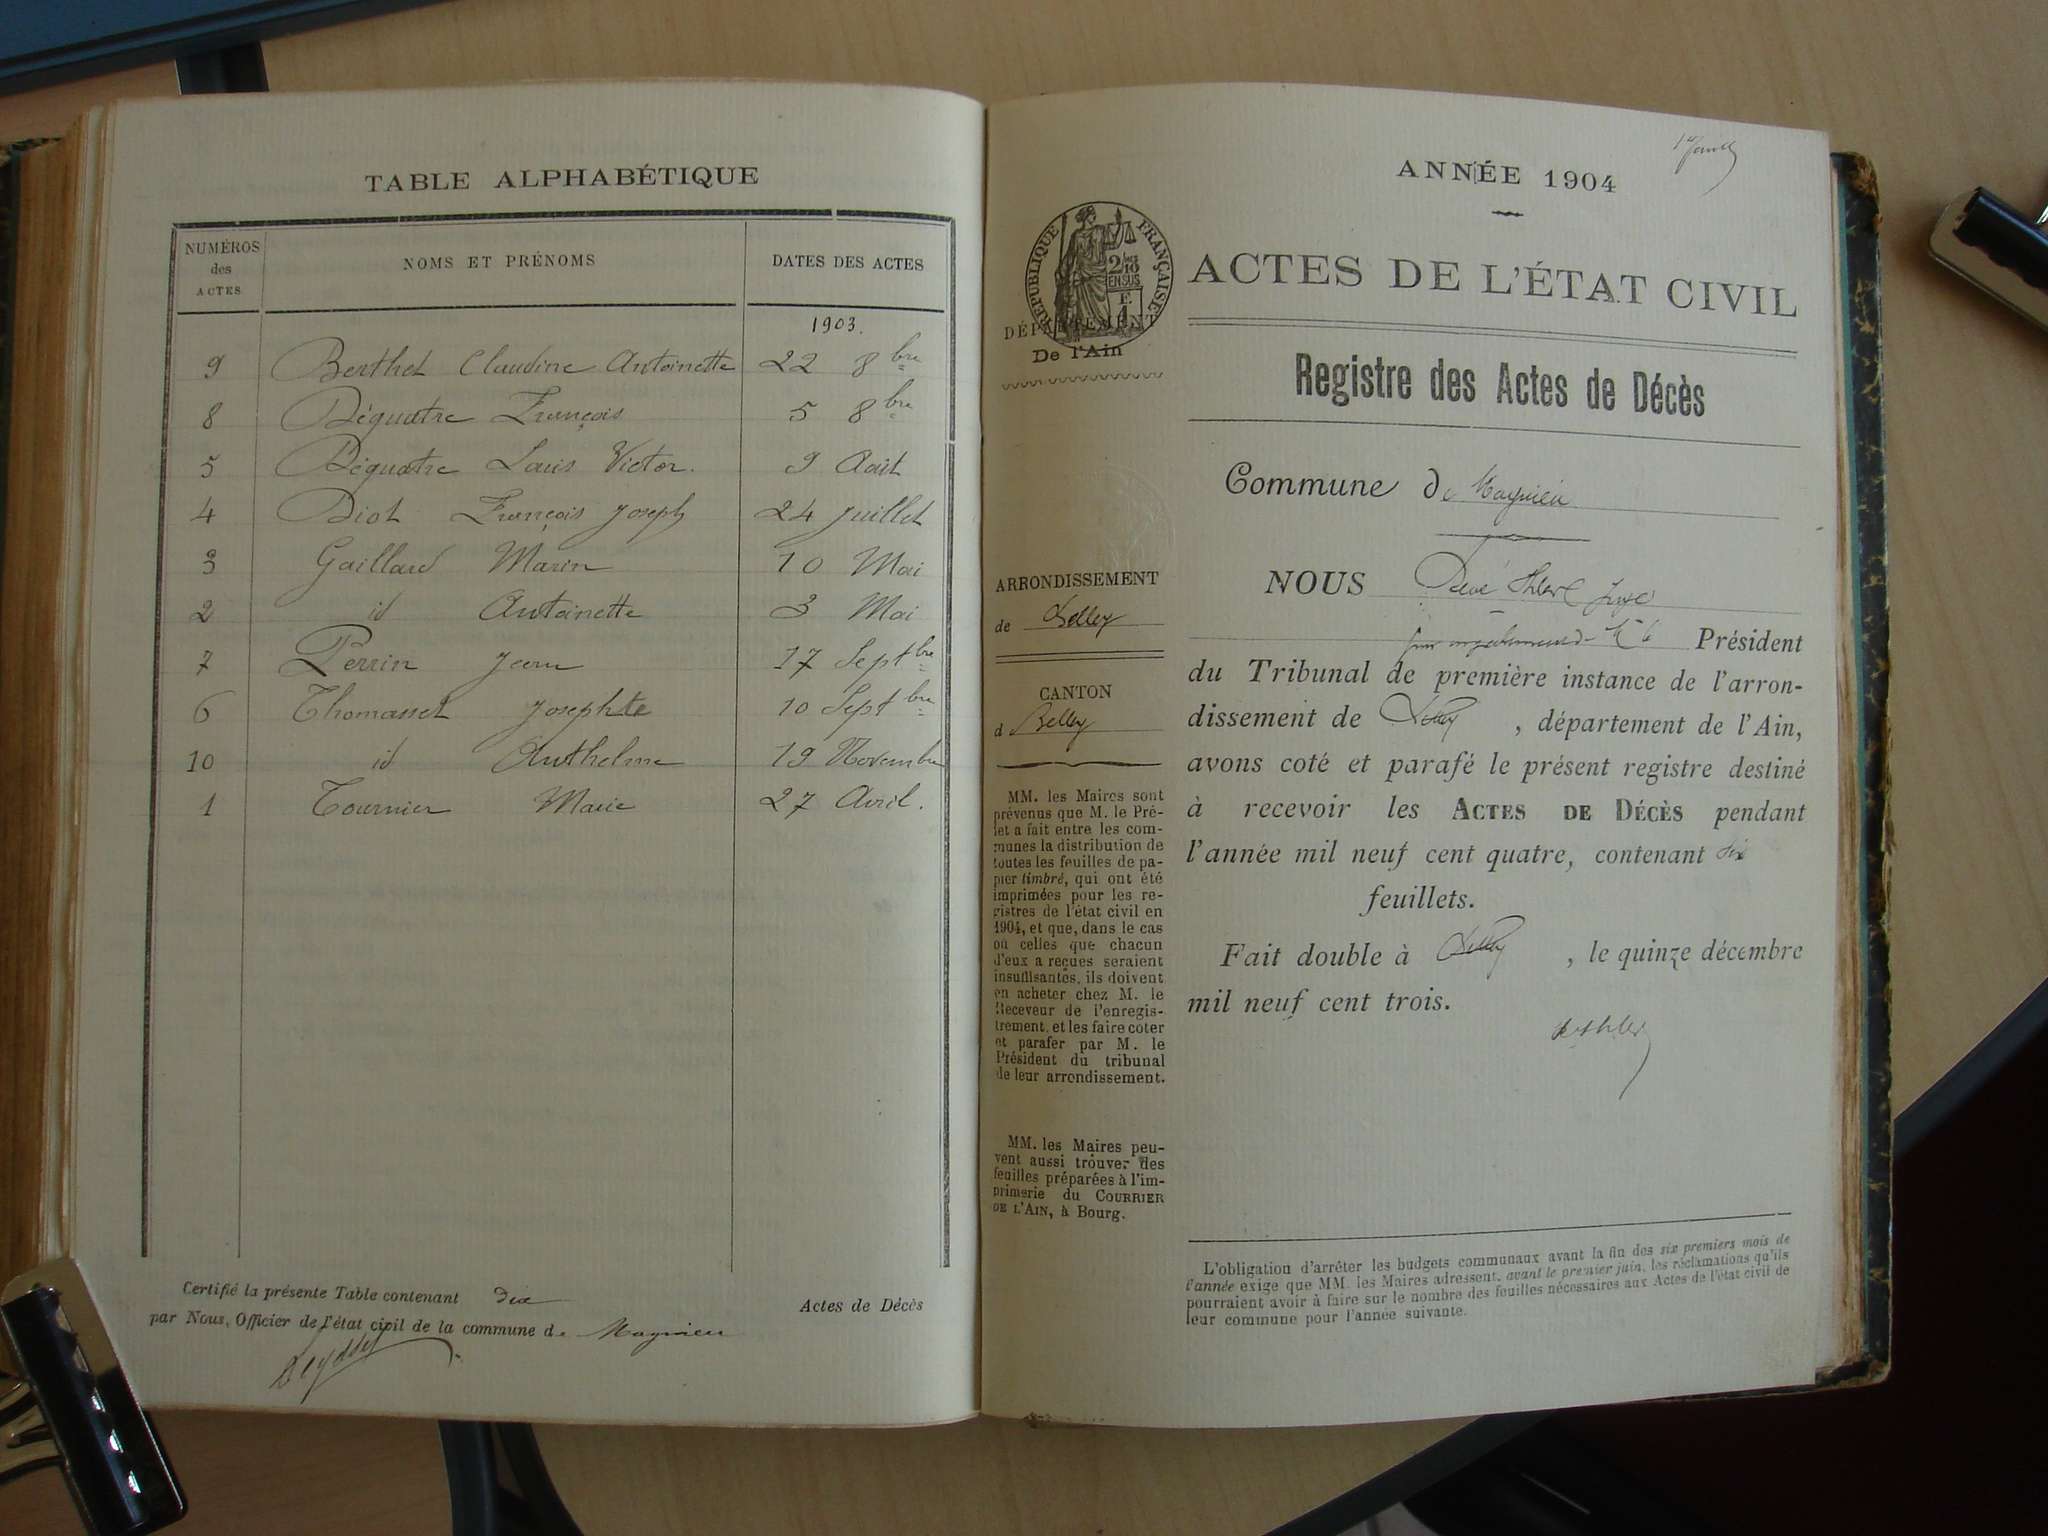 TABLE ALPHABÉTIQUE
NUMÉROS des ACTES
NOMS ET PRÉNOMS
DATES DES ACTES
1903.
9 Berthet Claudine Antoinette 22 8bre
8 Déquatre François 5 8bre
5 Déquatre Louis Victor. 9 Août
4 Diot François Joseph 24 juillet
3 Gaillard Marin 10 Mai
2 id Antoinette 3 Mai
7 Perrin Jean 17 Septbre
6 Thomasset Josephte 10 Septbre
10 id Anthelme 19 Novembre
1 Tournier Marie 27 Avril.
Certifié la présente Table contenant dix Actes de Décès
par Nous, Officier de l'état civil de la commune de Magnieu
1r feuillet
ANNÉE 1904
RÉPUBLIQUE FRANÇAISE
2/10
EN SUS
DÉPARTEMENT
De l'Ain
ACTES DE L'ÉTAT CIVIL
Registre des Actes de Décès
Commune de Magnieu
ARRONDISSEMENT
de Belley
CANTON
d Belley
MM. les Maires sont
prévenus que M. le Pré-
fet a fait entre les com-
munes la distribution de
toutes les feuilles de pa-
pier timbré, qui ont été
imprimées pour les re-
gistres de l'état civil en
1904, et que, dans le cas
où celles que chacun
d'eux a reçues seraient
insuffisantes, ils doivent
en acheter chez M. le
Receveur de l'enregis-
trement, et les faire coter
et parafer par M. le
Président du tribunal
de leur arrondissement.
MM. les Maires peu-
vent aussi trouver des
feuilles préparées à l'im-
primerie du COURRIER
DE L'AIN, à Bourg.
NOUS juge
Président
du Tribunal de première instance de l'arron-
dissement de Belley, département de l'Ain,
avons coté et parafé le présent registre destiné
à recevoir les ACTES DE DÉCÈS pendant
l'année mil neuf cent quatre, contenant six
feuillets.
Fait double à Belley, le quinze décembre
mil neuf cent trois.
L'obligation d'arrêter les budgets communaux avant la fin des six premiers mois de
l'année exige que MM. les Maires adressent, avant le premier juin, les réclamations qu'ils
pourraient avoir à faire sur le nombre des feuilles nécessaires aux Actes de l'état civil de
leur commune pour l'année suivante.